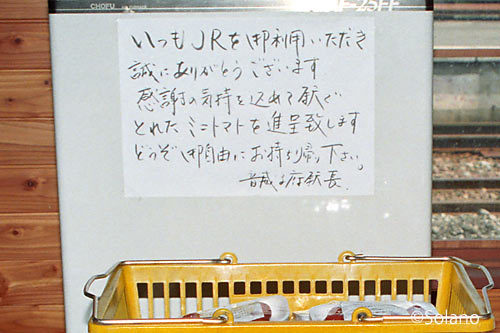 CHOFU
25FF
いつもJRを御利用いただき
誠にありがとうございます
感謝の気持を込めて駅で
とれたミニトマトを進呈致します
どうぞ御自由にお持ち帰り下さい。
音威子府駅長
©Solano